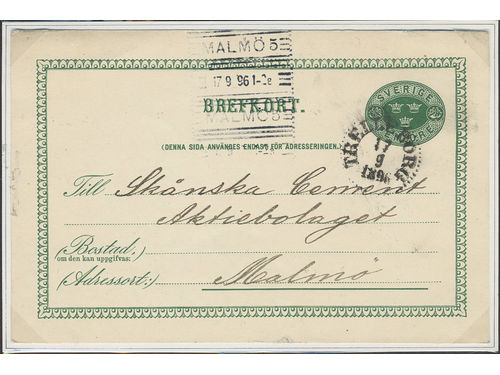 MALMÖ 5
17 9 96 1-2e
BREFKORT.
MALMÖ 5
SVERIGE
ÖRE
(DENNA SIDA ANVÄNDES ENDAST FÖR ADRESSERINGEN.)
TRELLEBORG
17
9
1896
Till Skånska Cement
Aktiebolaget
(Bostad,
om den kan uppgifvas:)
(Adressort:) Malmö